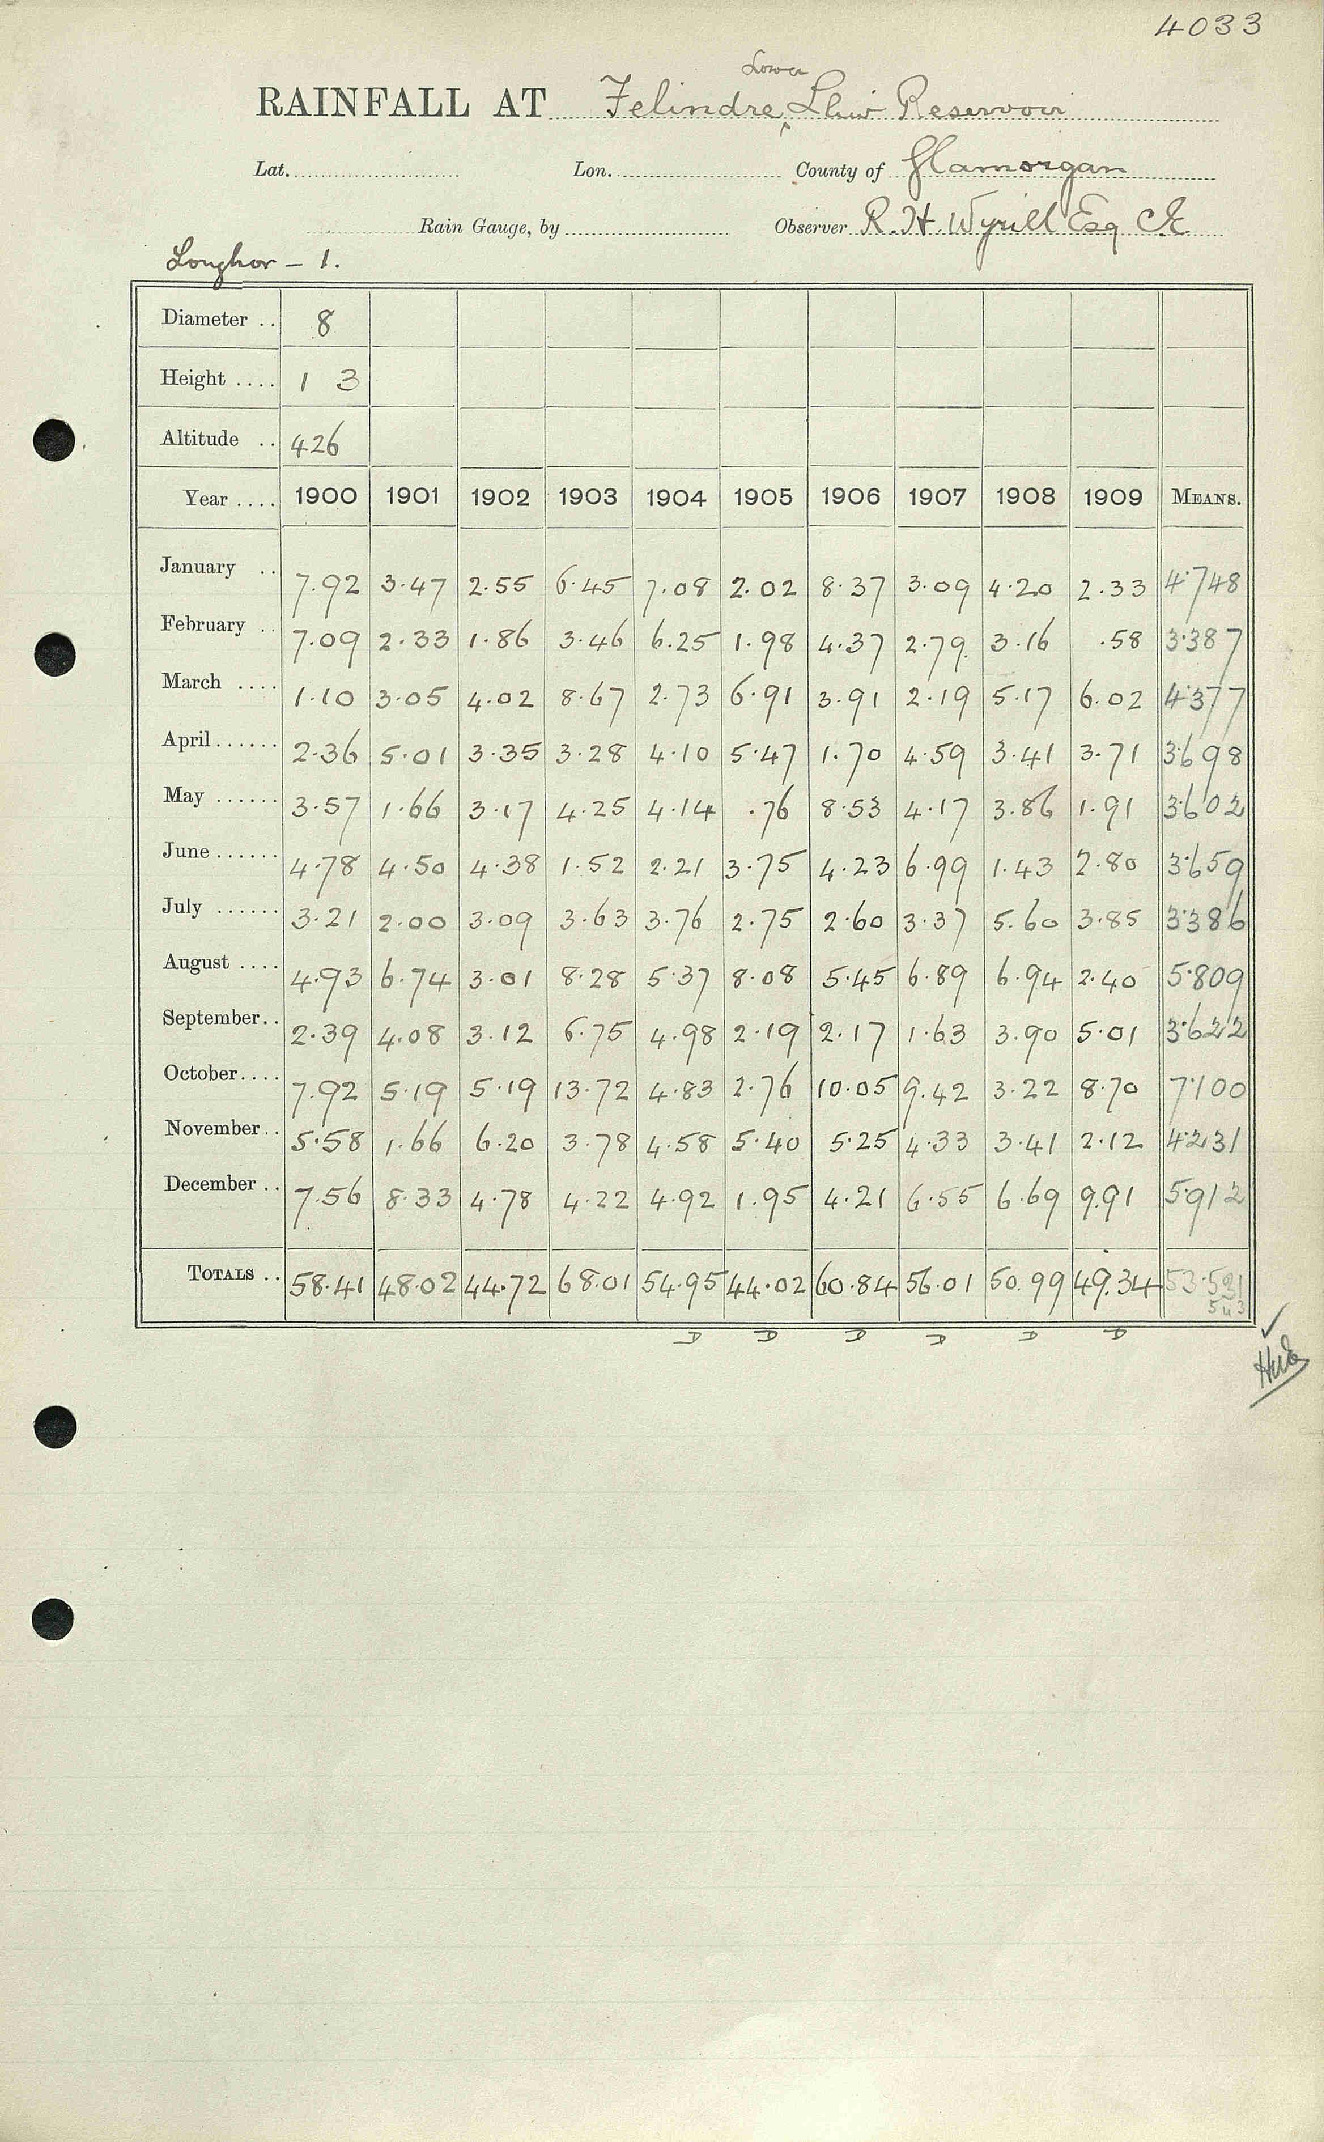 4033
Lower
RAINFALL AT Felindre ^ Lliw Reservoir
Lat. Lon. County of Glamorgan
Rain Gauge, by Observer R. H Wyrill Esq CE
Loughor – 1.
Diameter .. 8
Height .... 1 3
Altitude .. 426
Year .... 1900 1901 1902 1903 1904 1905 1906 1907 1908 1909 MEANS.
January .. 7.92 3.47 2.55 6.45 7.08 2.02 8.37 3.09 4.20 2.33 4.748
February .. 7.09 2.33 1.86 3.46 6.25 1.98 4.37 2.79 3.16 .58 3.387
March .... 1.10 3.05 4.02 8.67 2.73 6.91 3.91 2.19 5.17 6.02 4.377
April...... 2.36 5.01 3.35 3.28 4.10 5.47 1.70 4.59 3.41 3.71 3.698
May ...... 3.57 1.66 3.17 4.25 4.14 .76 8.53 4.17 3.86 1.91 3.602
June...... 4.78 4.50 4.38 1.52 2.21 3.75 4.23 6.99 1.43 2.80 3.659
July ...... 3.21 2.00 3.09 3.63 3.76 2.75 2.60 3.37 5.60 3.85 3.386
August .... 4.93 6.74 3.01 8.28 5.37 8.08 5.45 6.89 6.94 2.40 5.809
September.. 2.39 4.08 3.12 6.75 4.98 2.19 2.17 1.63 3.90 5.01 3.622
October.... 7.92 5.19 5.19 13.72 4.83 2.76 10.05 9.42 3.22 8.70 7.100
November.. 5.58 1.66 6.20 3.78 4.58 5.40 5.25 4.33 3.41 2.12 4.231
December .. 7.56 8.33 4.78 4.22 4.92 1.95 4.21 6.55 6.69 9.91 5.912
TOTALS .. 58.41 48.02 44.72 68.01 54.95 44.02 60.84 56.01 50.99 49.34 53.531
D D D D D D